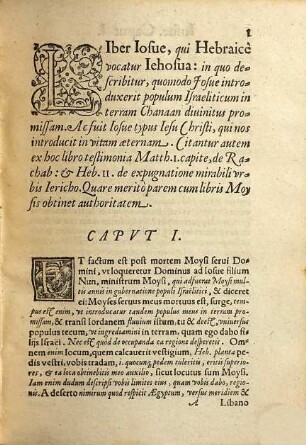 1
LIber Iosue, qui Hebraicè
vocatur Iehosua: in quo de-
scribitur, quomodo Iosue intro-
duxerit populum Israeliticum in
terram Chanaan diuinitus pro-
missam. Ac fuit Iosue typus Iesu Christi, qui nos
introducit in vitam æternam. Citantur autem
ex hoc libro testimonia Matth. 1. capite, de Ra-
chab: & Heb. 11. de expugnatione mirabili vr-
bis Iericho. Quare meritò parem cum libris Moy-
sis obtinet authoritatem.
CAPVT I.
ET factum est post mortem Moysi serui Do-
mini, vt loqueretur Dominus ad Iosue filium
Nun, ministrum Moysi, qui adfuerat Moysi mul-
tis annis in gubernatione populi Israelitici, & diceret
ei: Moyses seruus meus mortuus est, surge, tem-
pus est enim, vt introducatur tandem populus meus in terram pro-
missam, & transi Iordanem fluuium istum, tu & deest, vniuersus
populus tecum, vt ingrediamini in terram, quam ego dabo fi-
liis Israel. Nec est quòd de occupanda ea regione desperetis. Om-
nem enim locum, quem calcauerit vestigium, Heb. planta pe-
dis vestri, vobis tradam, i. quocunq; pedem tuleritis, eritis superio-
res, & ea loca obtinebitis meo auxilio, sicut locutus sum Moysi.
Iam enim dudum descripsi vobis limites eius, quam vobis dabo, regio-
nis. A deserto nimirum quod respicit Ægyptum, versus meridiem &
A Libano